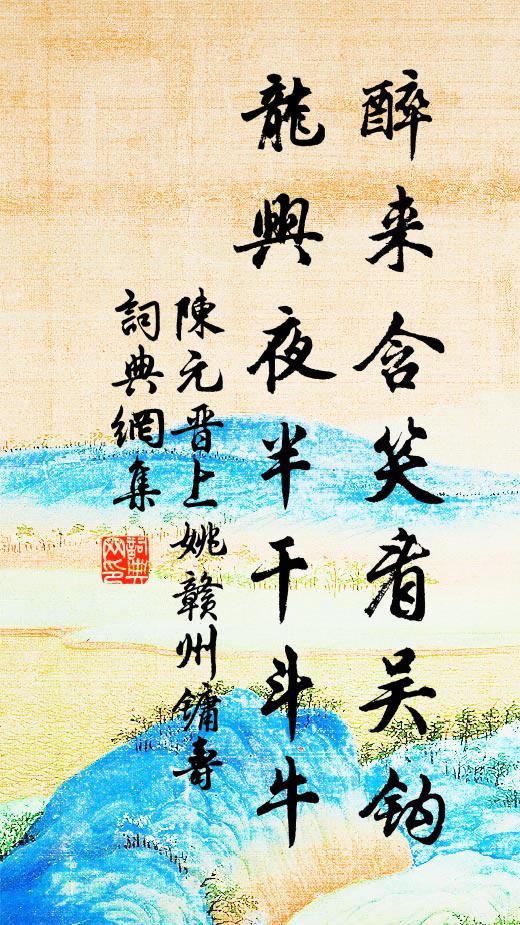 醉来含笑看吴钩
龍興夜半干斗牛
陳元晋上姚贛州鏞壽
詞典網集
詞典
网印